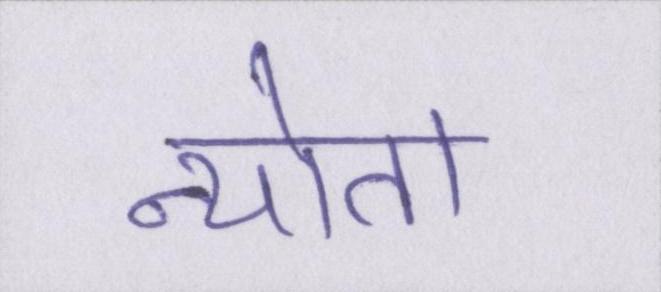 न्योता